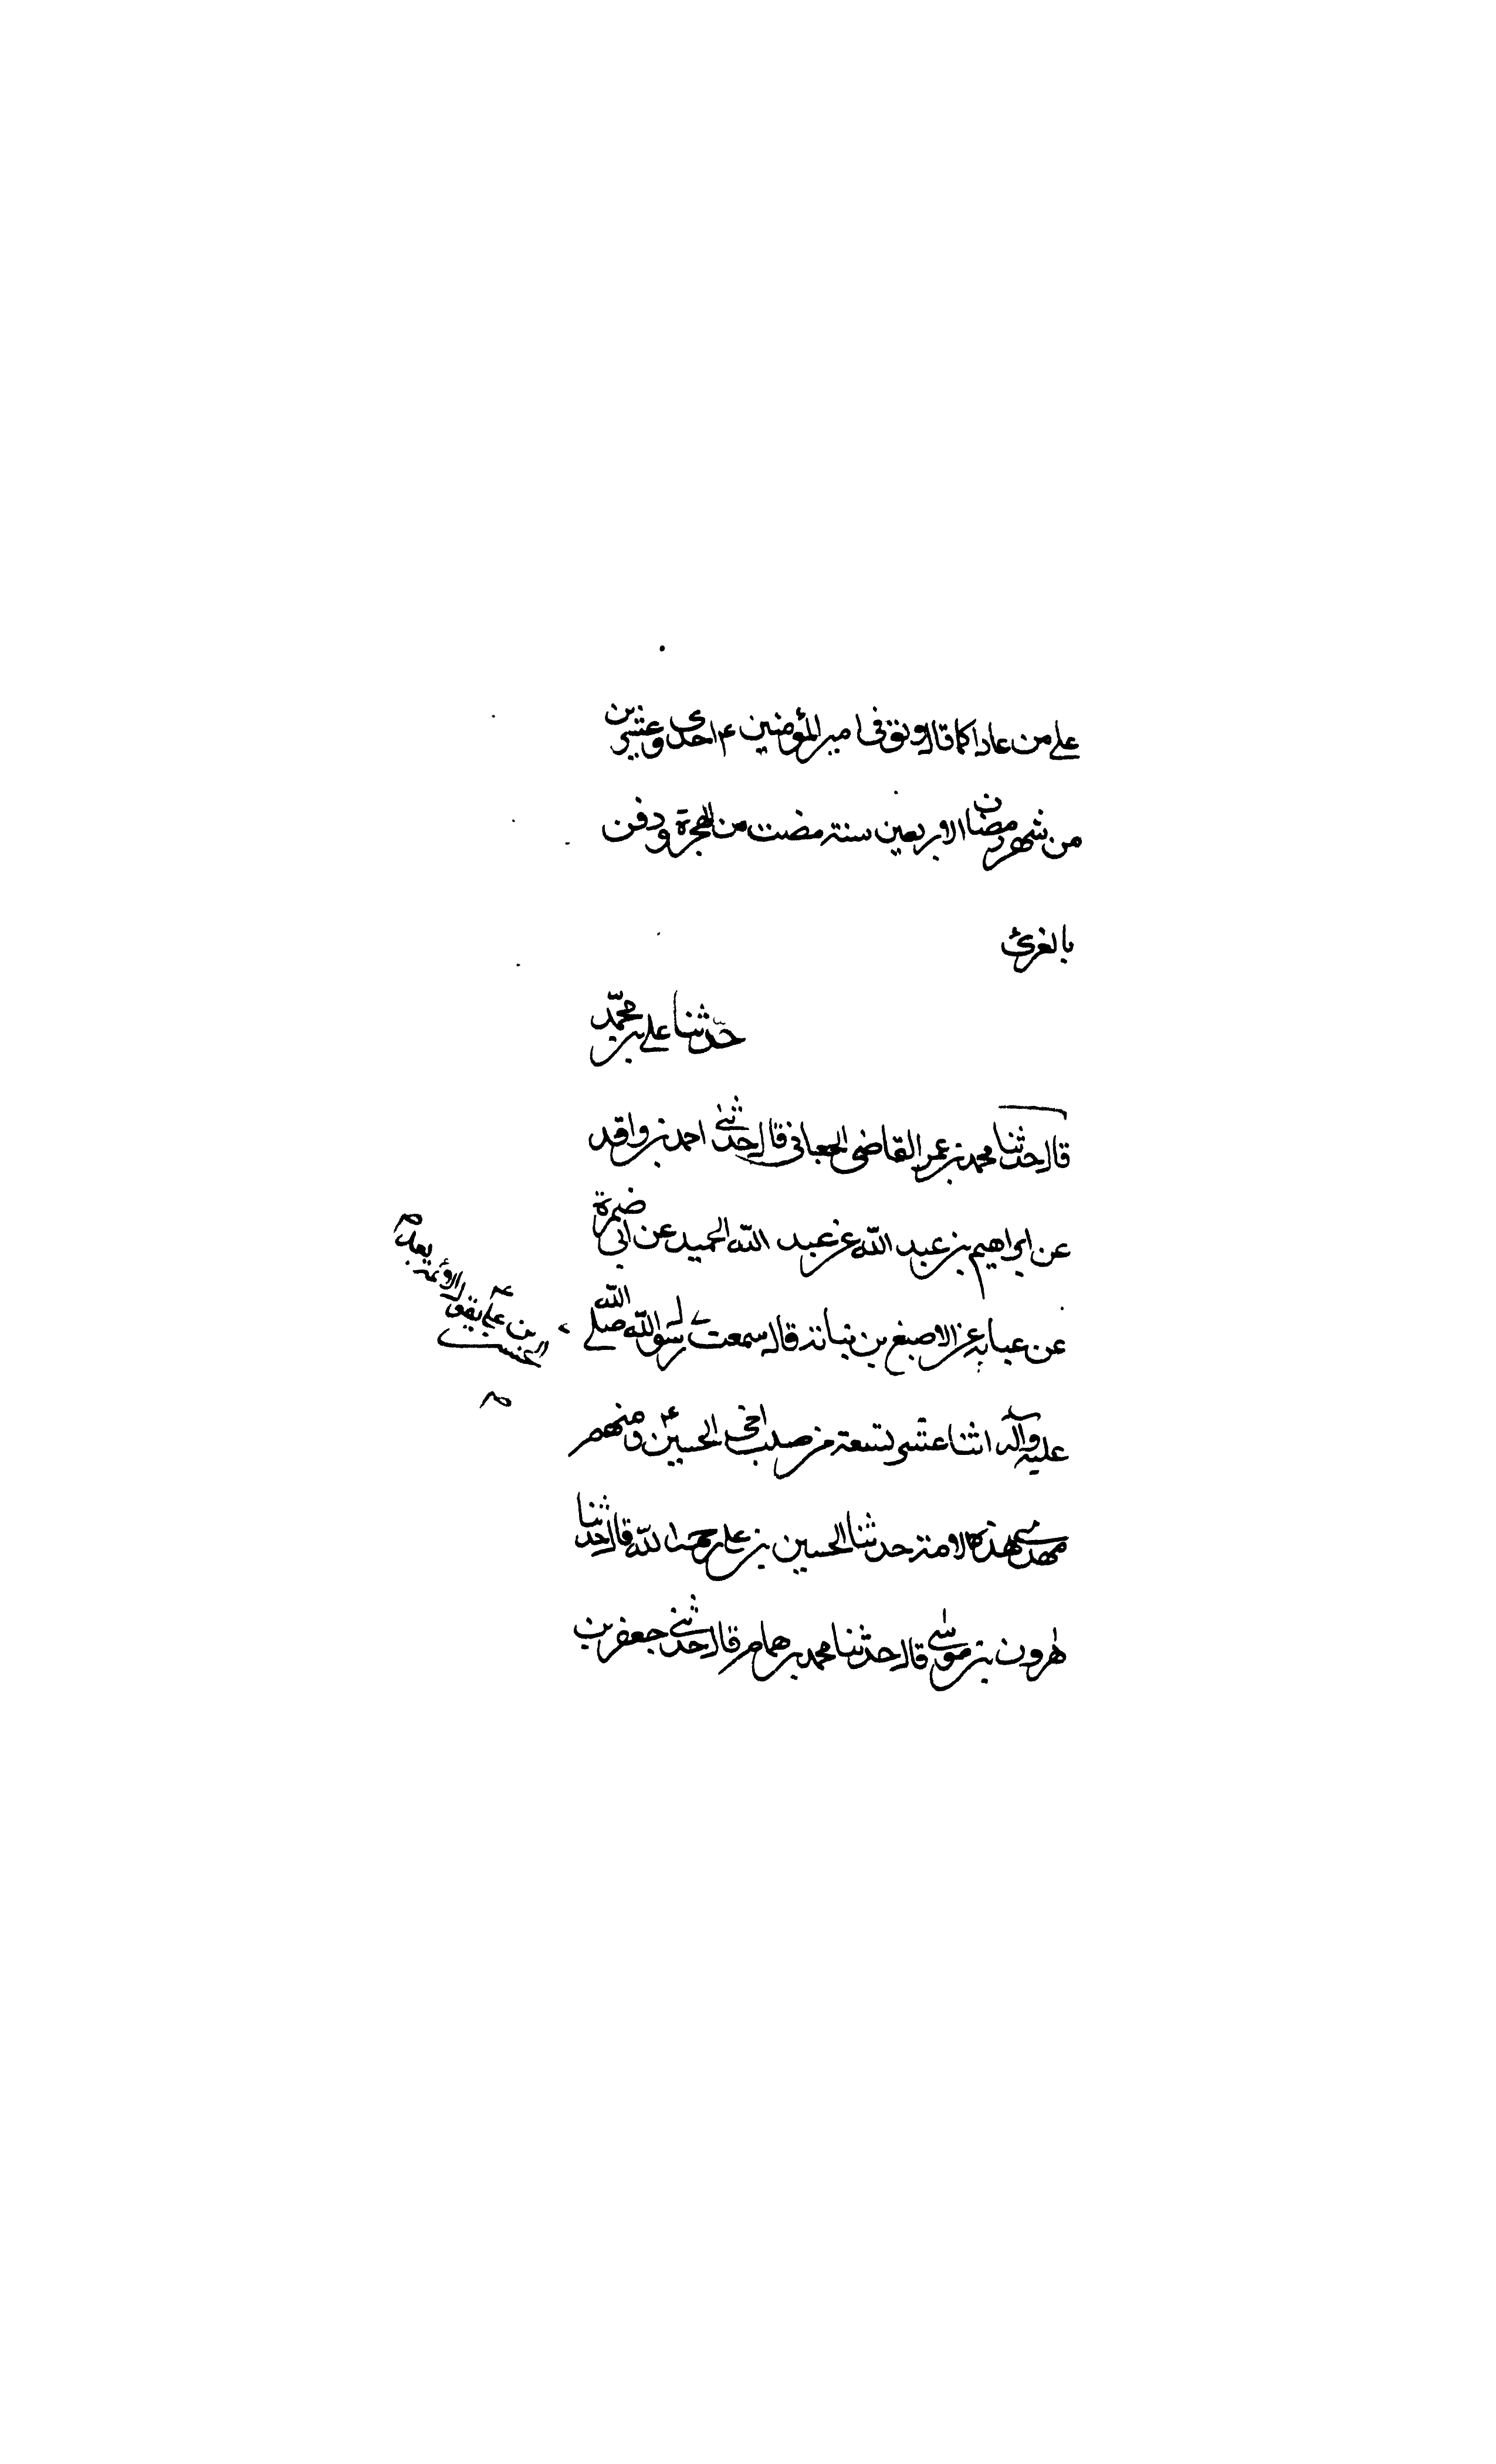 علي من عاداكما قال وتوفى امير المؤمنين ع احدى وعشرين
من شهر رمضان الاربعين سنة مضت من الهجرة ودفن
بالغرى
حدّثنا علي بن محمّد
قال حدثنا محمد بن عمر القاضى الجعابى قال حدثنى احمد بن واقد
عن ابراهيم بن عبد الله عن عبد الله الحميد عن ابى ضمرة
عن عبايه عن الاصبغ بن نباتة قال سمعت رسول الله صلى الله
الحسن بن علي يقول الائمة بعد
عليه وآله اثنا عشر تسعة من صلب اخى الحسين ومنهم
مهدى هذه الامة حدثنا الحسين بن على رحمه الله قال حدثنا
هرون بن موسى قال حدثنا محمد بن همام قال حدثنى جعفر بن